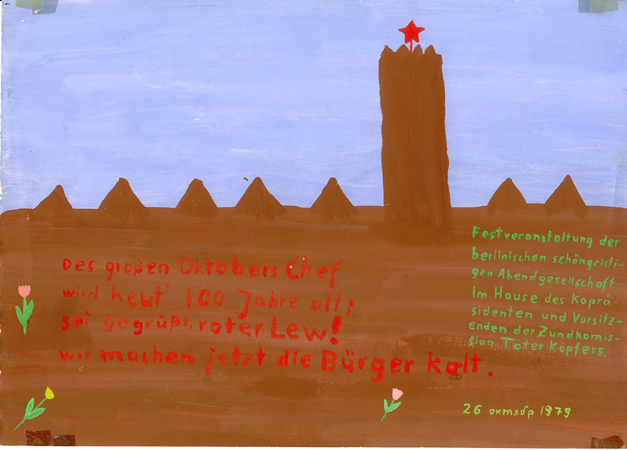 Des großen Oktobers Chef
wird heut' 100 Jahre alt;
sei gegrüßt, roter Lew!
wir machen jetzt die Bürger kalt.
Festveranstaltung der
berlinischen schöngeisti-
gen Abendgesellschaft
Im Hause des Koprä-
sidenten und Vorsitz-
enden der Zündkomis-
sion Toter Köpfers.
26 октябр 1979